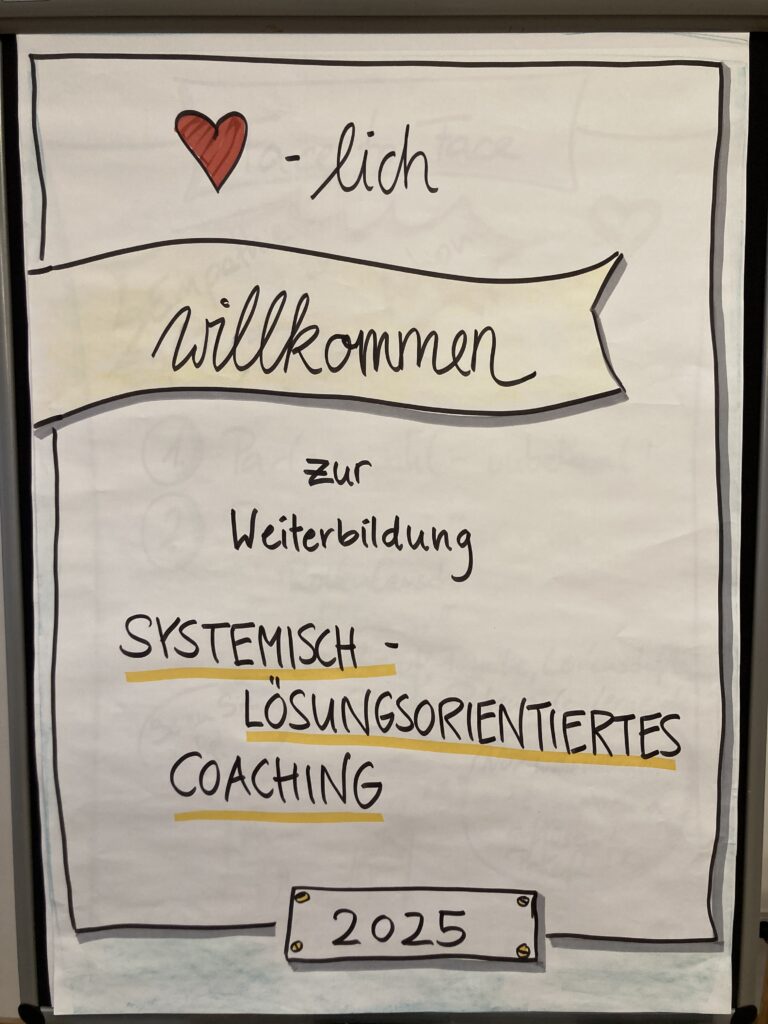 ❤-lich
willkommen
zur
Weiterbildung
SYSTEMISCH -
LÖSUNGSORIENTIERTES
COACHING
2025